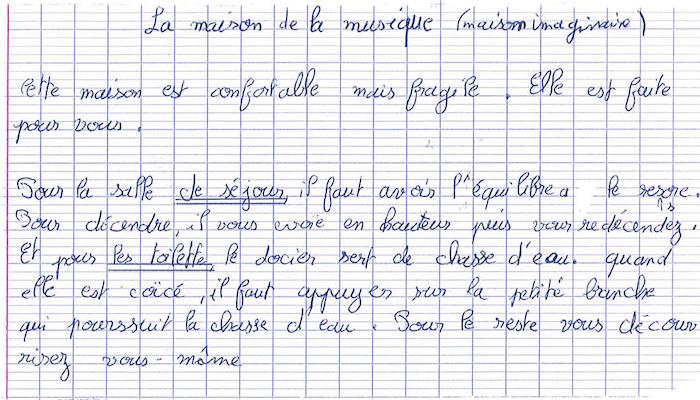 La maison de la musique (maison imaginaire)
Cette maison est confortable mais fragile. Elle est faite
pour vous.
Pour la salle de séjour, il faut avoir l'équilibre a le resore.
Pour décendre, il vous evoie en hauteur puis vous redécendez.
Et pour les toilette, le docier sert de chasse d'eau. quand
elle est coïcé, il faut appuyer sur la petite branche
qui pourssuit la chasse d'eau. Pour le reste vous décour
rirez vous-même